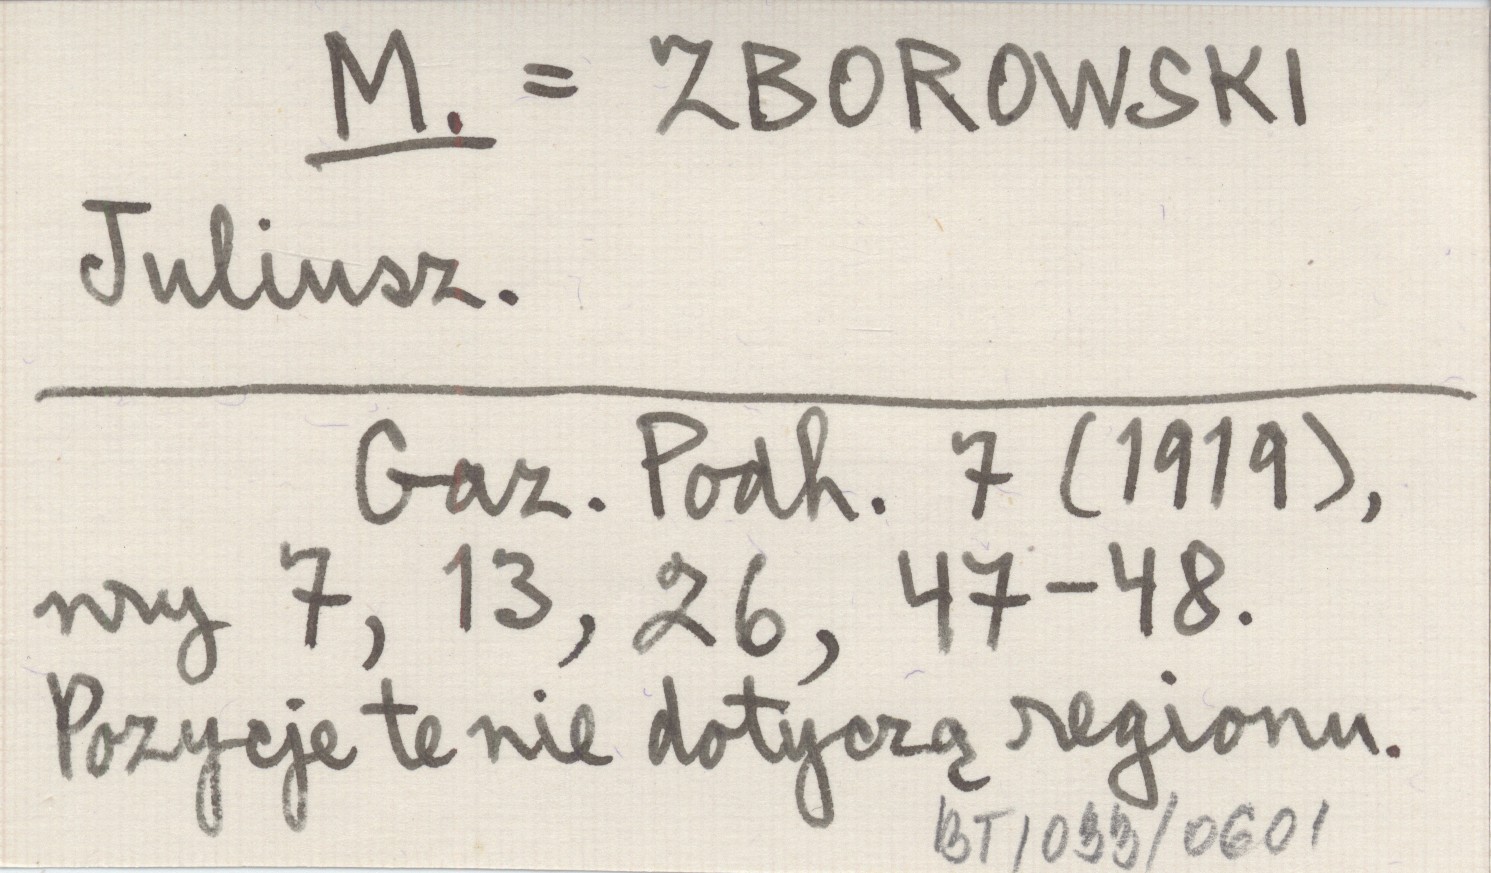 M. = ZBOROWSKI
Juliusz.
Gaz. Podh. 7 (1919),
nry 7, 13, 26, 47-48.
Pozycje te nie dotyczą regionu.
BT/033/0601